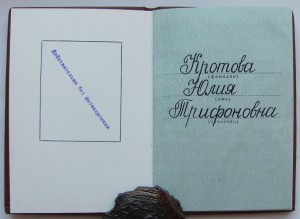 Действительно без фотокарточки
Кротова
(фамилия)
Юлия
(имя)
Трифоновна
(отчество)